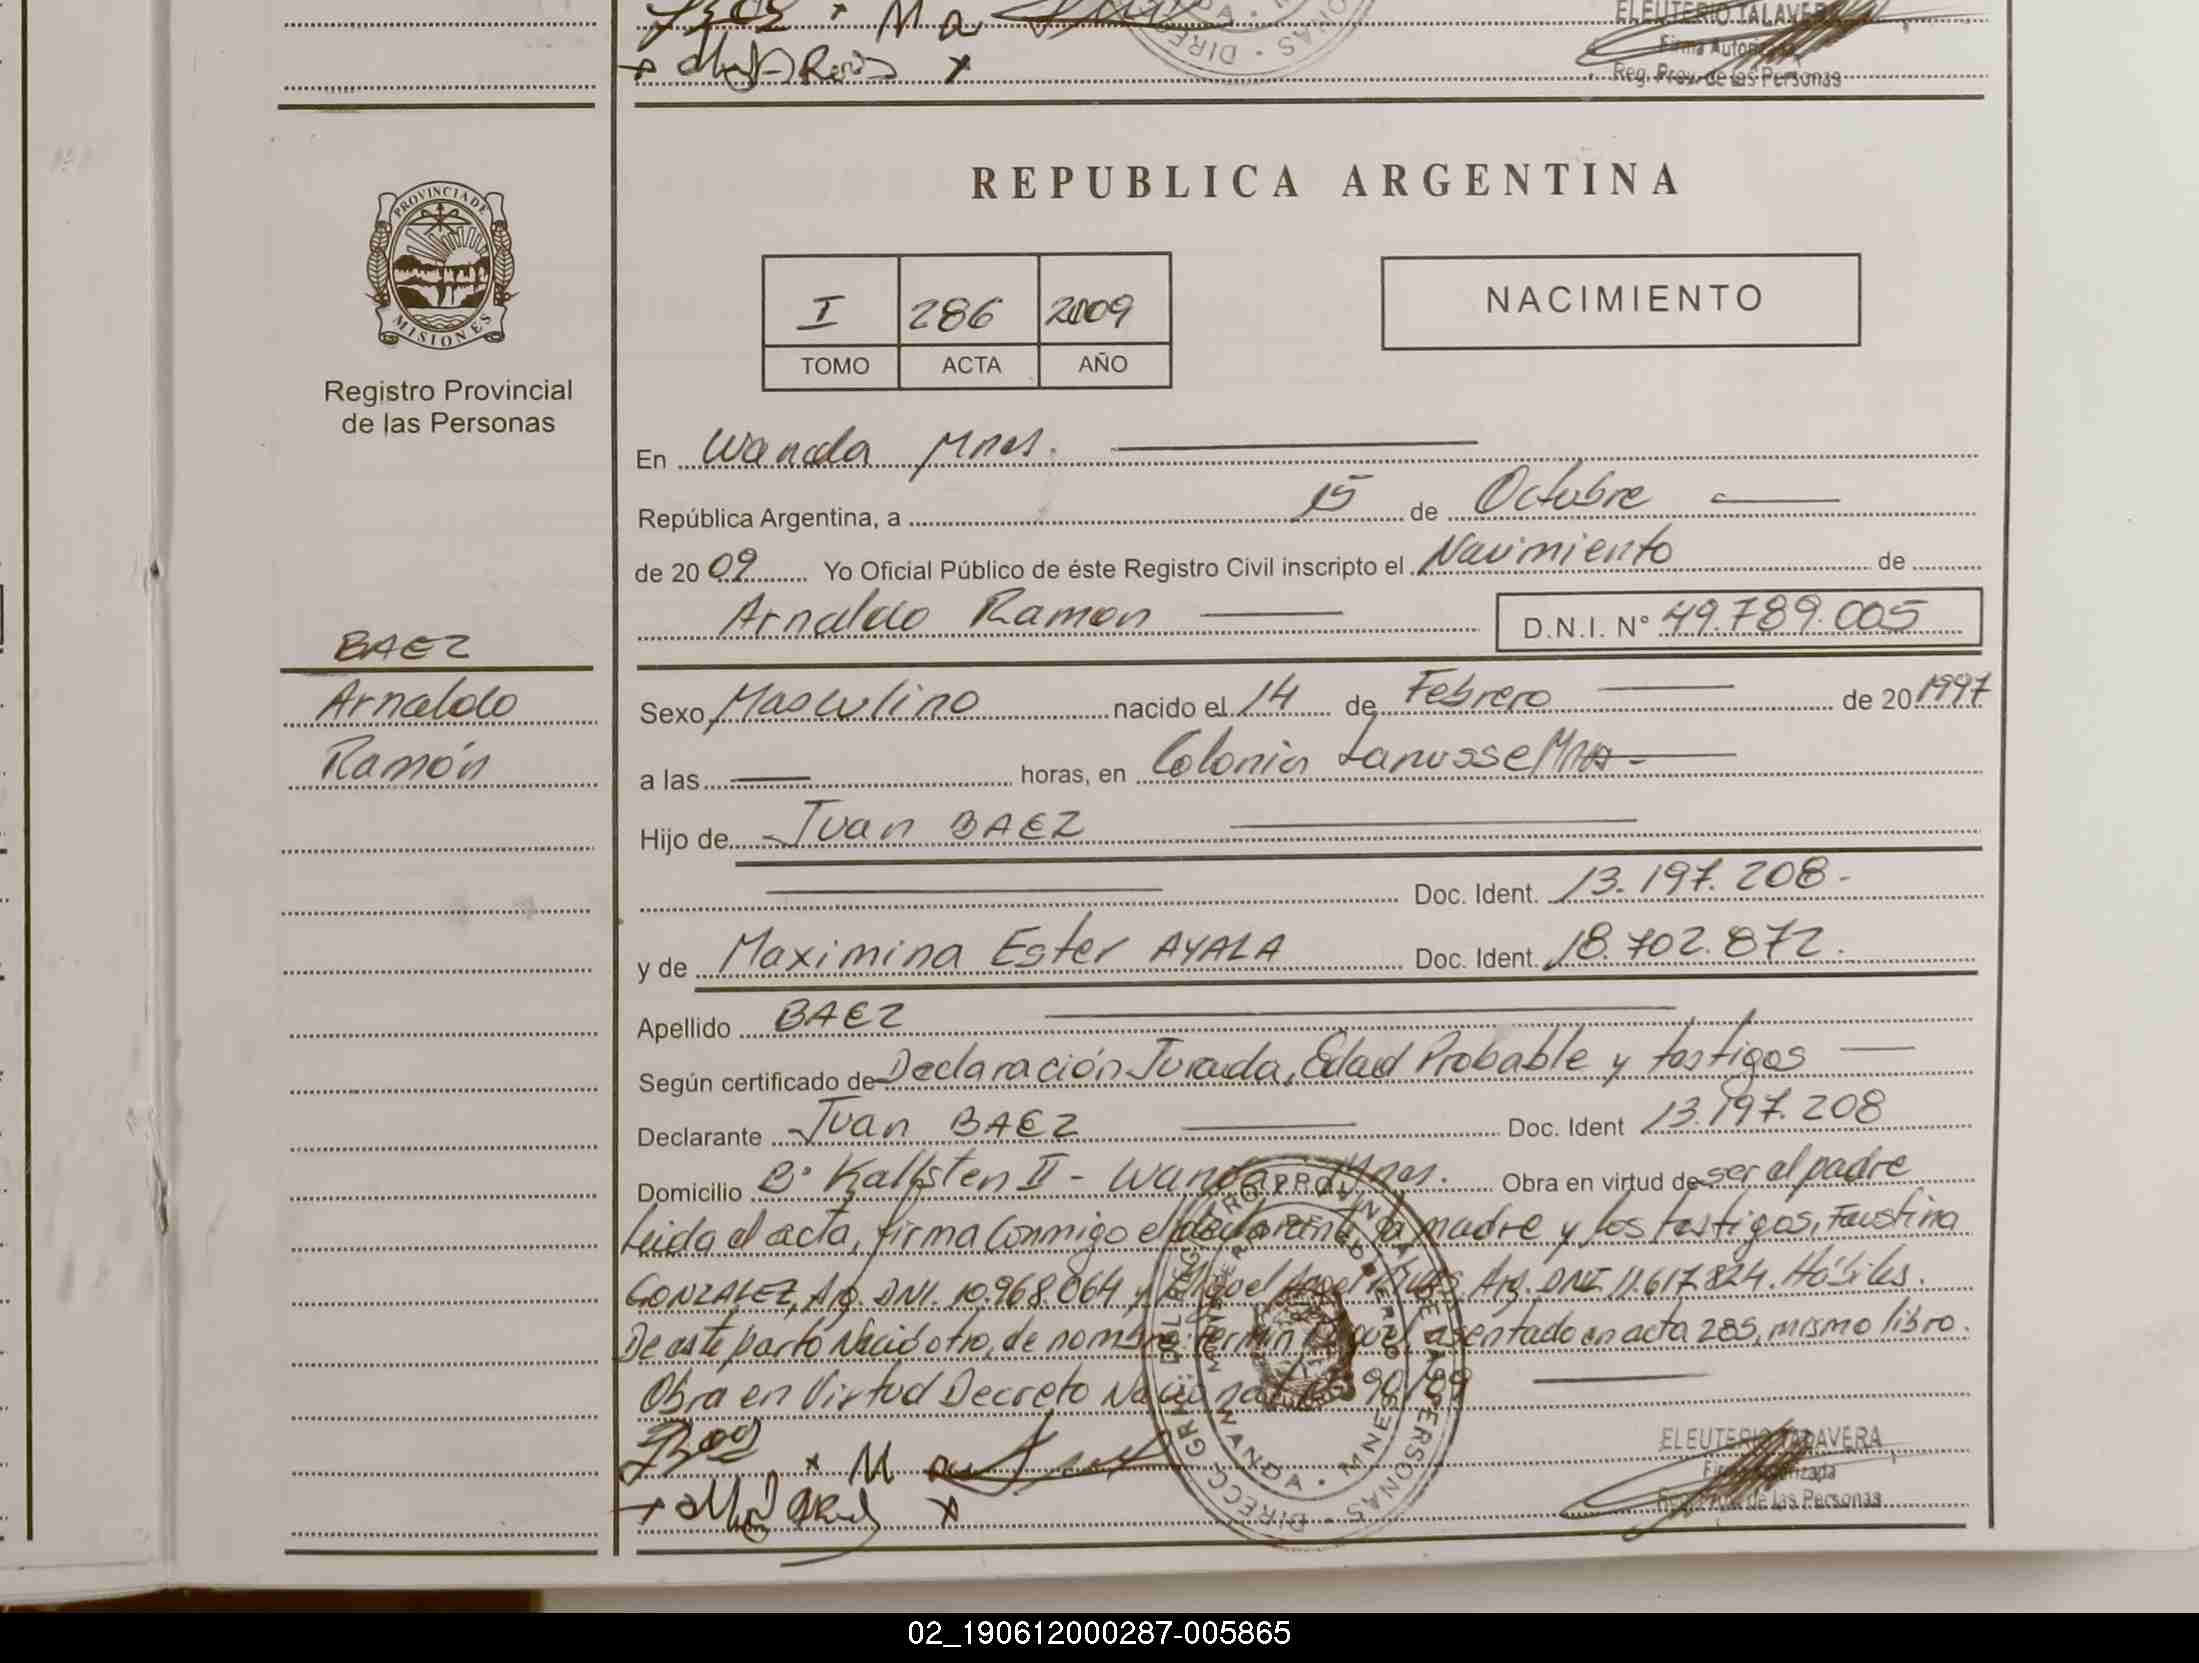 ELEUTERIO TALAVERA
Firma Autorizada
Reg. Prov. de las Personas
PROVINCIA DE
MISIONES
Registro Provincial
de las Personas
BAEZ
Arnaldo
Ramón
REPUBLICA ARGENTINA
I 286 2009
TOMO ACTA AÑO
NACIMIENTO
En Wanda Mnes.
República Argentina, a 15 de Octubre
de 2009 Yo Oficial Público de éste Registro Civil inscripto el Nacimiento de
Arnaldo Ramon D.N.I. N° 49.789.005
Sexo Masculino nacido el 14 de Febrero de 20 1997
a las horas, en Colonia Lanusse Mnes
Hijo de Juan BAEZ
Doc. Ident. 13.197.208-
y de Maximina Ester AYALA Doc. Ident. 18.702.872.
Apellido BAEZ
Según certificado de Declaración Jurada, Edad Probable y testigos
Declarante Juan BAEZ Doc. Ident 13.197.208
Domicilio B° Kallsten II - Wanda Mnes. Obra en virtud de ser el padre
Leida el acta, firma Conmigo el declarante, la madre y los testigos, Faustina
GONZALEZ, Arg. DNI. 10.968.064 y Miguel Angel Arg. DNI 11.617.824. Hábiles.
De este parto Nació otro, de nombre: Fermin asentado en acta 285, mismo libro.
Obra en Virtud Decreto Nacional 90/09
ELEUTERIO TALAVERA
Firma Autorizada
Reg. Prov. de las Personas
WANDA · MNES
02_190612000287-005865